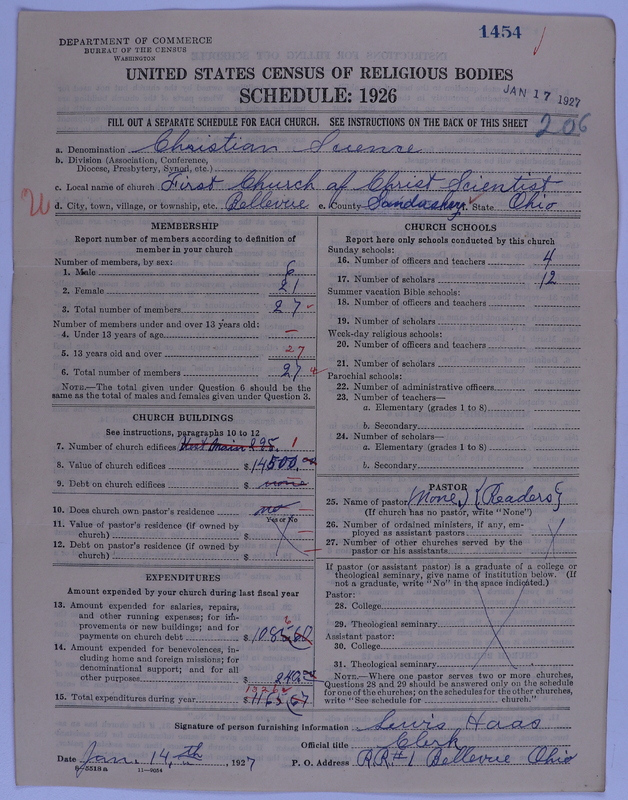 1454
DEPARTMENT OF COMMERCE
BUREAU OF THE CENSUS
WASHINGTON
UNITED STATES CENSUS OF RELIGIOUS BODIES
SCHEDULE: 1926
JAN 17 1927
FILL OUT A SEPARATE SCHEDULE FOR EACH CHURCH. SEE INSTRUCTIONS ON THE BACK OF THIS SHEET
206
a. Denomination Christian Science
b. Division (Association, Conference,
Diocese, Presbytery, Synod, etc.)
c. Local name of church First Church of Christ Scientist
d. City, town, village, or township, etc. Bellevue e. County Sandusky f. State Ohio
MEMBERSHIP
Report number of members according to definition of
member in your church
Number of members, by sex:
1. Male 6
2. Female 21
3. Total number of members 27
Number of members under and over 13 years old:
4. Under 13 years of age —
5. 13 years old and over 27
6. Total number of members 27
NOTE.—The total given under Question 6 should be
same as the total of males and females given under Question 3.
CHURCH BUILDINGS
See instructions, paragraphs 10 to 12
7. Number of church edifices 1
8. Value of church edifices $ 14500.
9. Debt on church edifices $ none
10. Does church own pastor's residence no
Yes or No
11. Value of pastor's residence (if owned by
church) $
12. Debt on pastor's residence (if owned by
church) $
EXPENDITURES
Amount expended by your church during last fiscal year
13. Amount expended for salaries, repairs,
and other running expenses; for im-
provements or new buildings; and for
payments on church debt $
14. Amount expended for benevolences, in-
cluding home and foreign missions; for
denominational support; and for all
other purposes $ 240.
15. Total expenditures during year $
CHURCH SCHOOLS
Report here only schools conducted by this church
Sunday schools:
16. Number of officers and teachers 4
17. Number of scholars 12
Summer vacation Bible schools:
18. Number of officers and teachers
19. Number of scholars
Week-day religious schools:
20. Number of officers and teachers
21. Number of scholars
Parochial schools:
22. Number of administrative officers
23. Number of teachers—
a. Elementary (grades 1 to 8)
b. Secondary
24. Number of scholars—
a. Elementary (grades 1 to 8)
b. Secondary
PASTOR
25. Name of pastor (None) {Readers}
(If church has no pastor, write "None")
26. Number of ordained ministers, if any, em-
ployed as assistant pastors
27. Number of other churches served by the
pastor or his assistants
If pastor (or assistant pastor) is a graduate of a college or
theological seminary, give name of institution below. (If
not a graduate, write "No" in the space indicated.)
Pastor:
28. College
29. Theological seminary
Assistant pastor:
30. College
31. Theological seminary
NOTE.—Where one pastor serves two or more churches,
Questions 28 and 29 should be answered only on the schedule
for one of the churches; on the schedules for the other churches,
write "See schedule for church."
Signature of person furnishing information Lewis Haas
Official title Clerk
Date Jan. 14,th, 1927 P. O. Address RR#1 Bellevue Ohio
6-5518a 11-9054